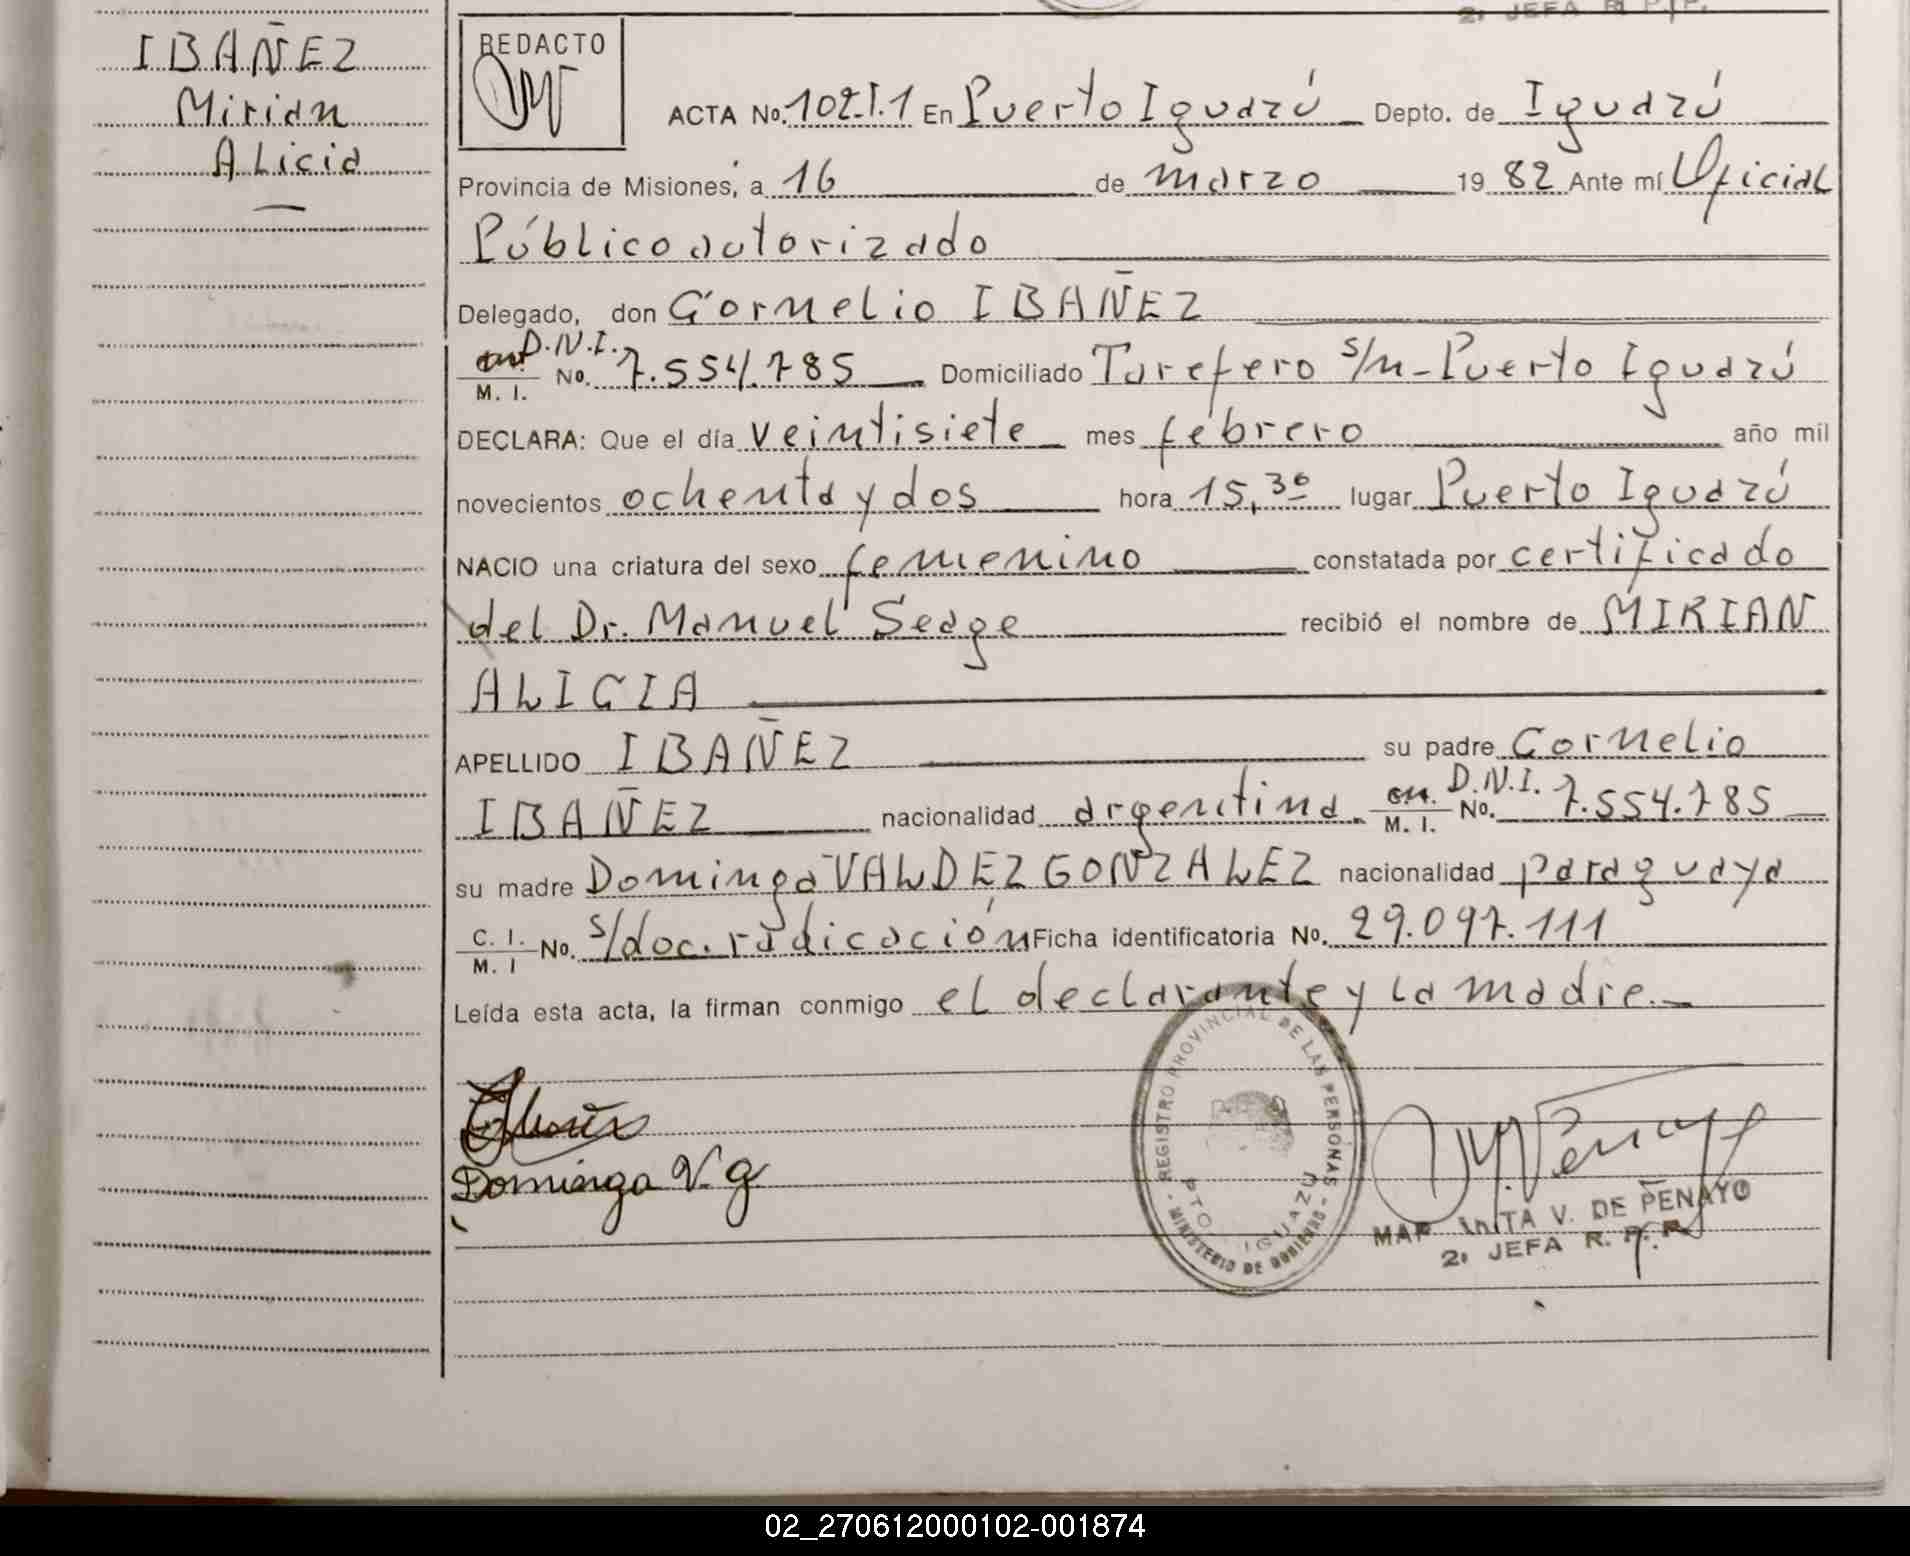 2. JEFA R. P. P.
IBAÑEZ
Mirian
Alicia
REDACTO
ACTA No. 102.T.1 En Puerto Iguazú Depto. de Iguazú
Provincia de Misiones, a 16 de marzo 19 82 Ante mí Oficial
Público autorizado
Delegado, don Cornelio IBAÑEZ
D.N.I.
M. I. No. 7.554.785 Domiciliado Tarefero s/n-Puerto Iguazú
DECLARA: Que el día veintisiete mes febrero año mil
novecientos ochenta y dos hora 15,30 lugar Puerto Iguazú
NACIO una criatura del sexo femenino constatada por certificado
del Dr. Manuel Seage recibió el nombre de MIRIAN
ALICIA
APELLIDO IBAÑEZ su padre Cornelio
IBAÑEZ nacionalidad argentina. M. I. D.N.I. No. 7.554.785
su madre Dominga VALDEZ GONZALEZ nacionalidad paraguaya
C. I. M. I No. s/doc. radicación Ficha identificatoria No. 29.097.111
Leída esta acta, la firman conmigo el declarante y la madre.
Dominga V. g
REGISTRO PROVINCIAL DE LAS PERSONAS - MINISTERIO DE GOBIERNO -
PTO. IGUAZU
V. DE PENAYO
2. JEFA R. P. P.
02_270612000102-001874